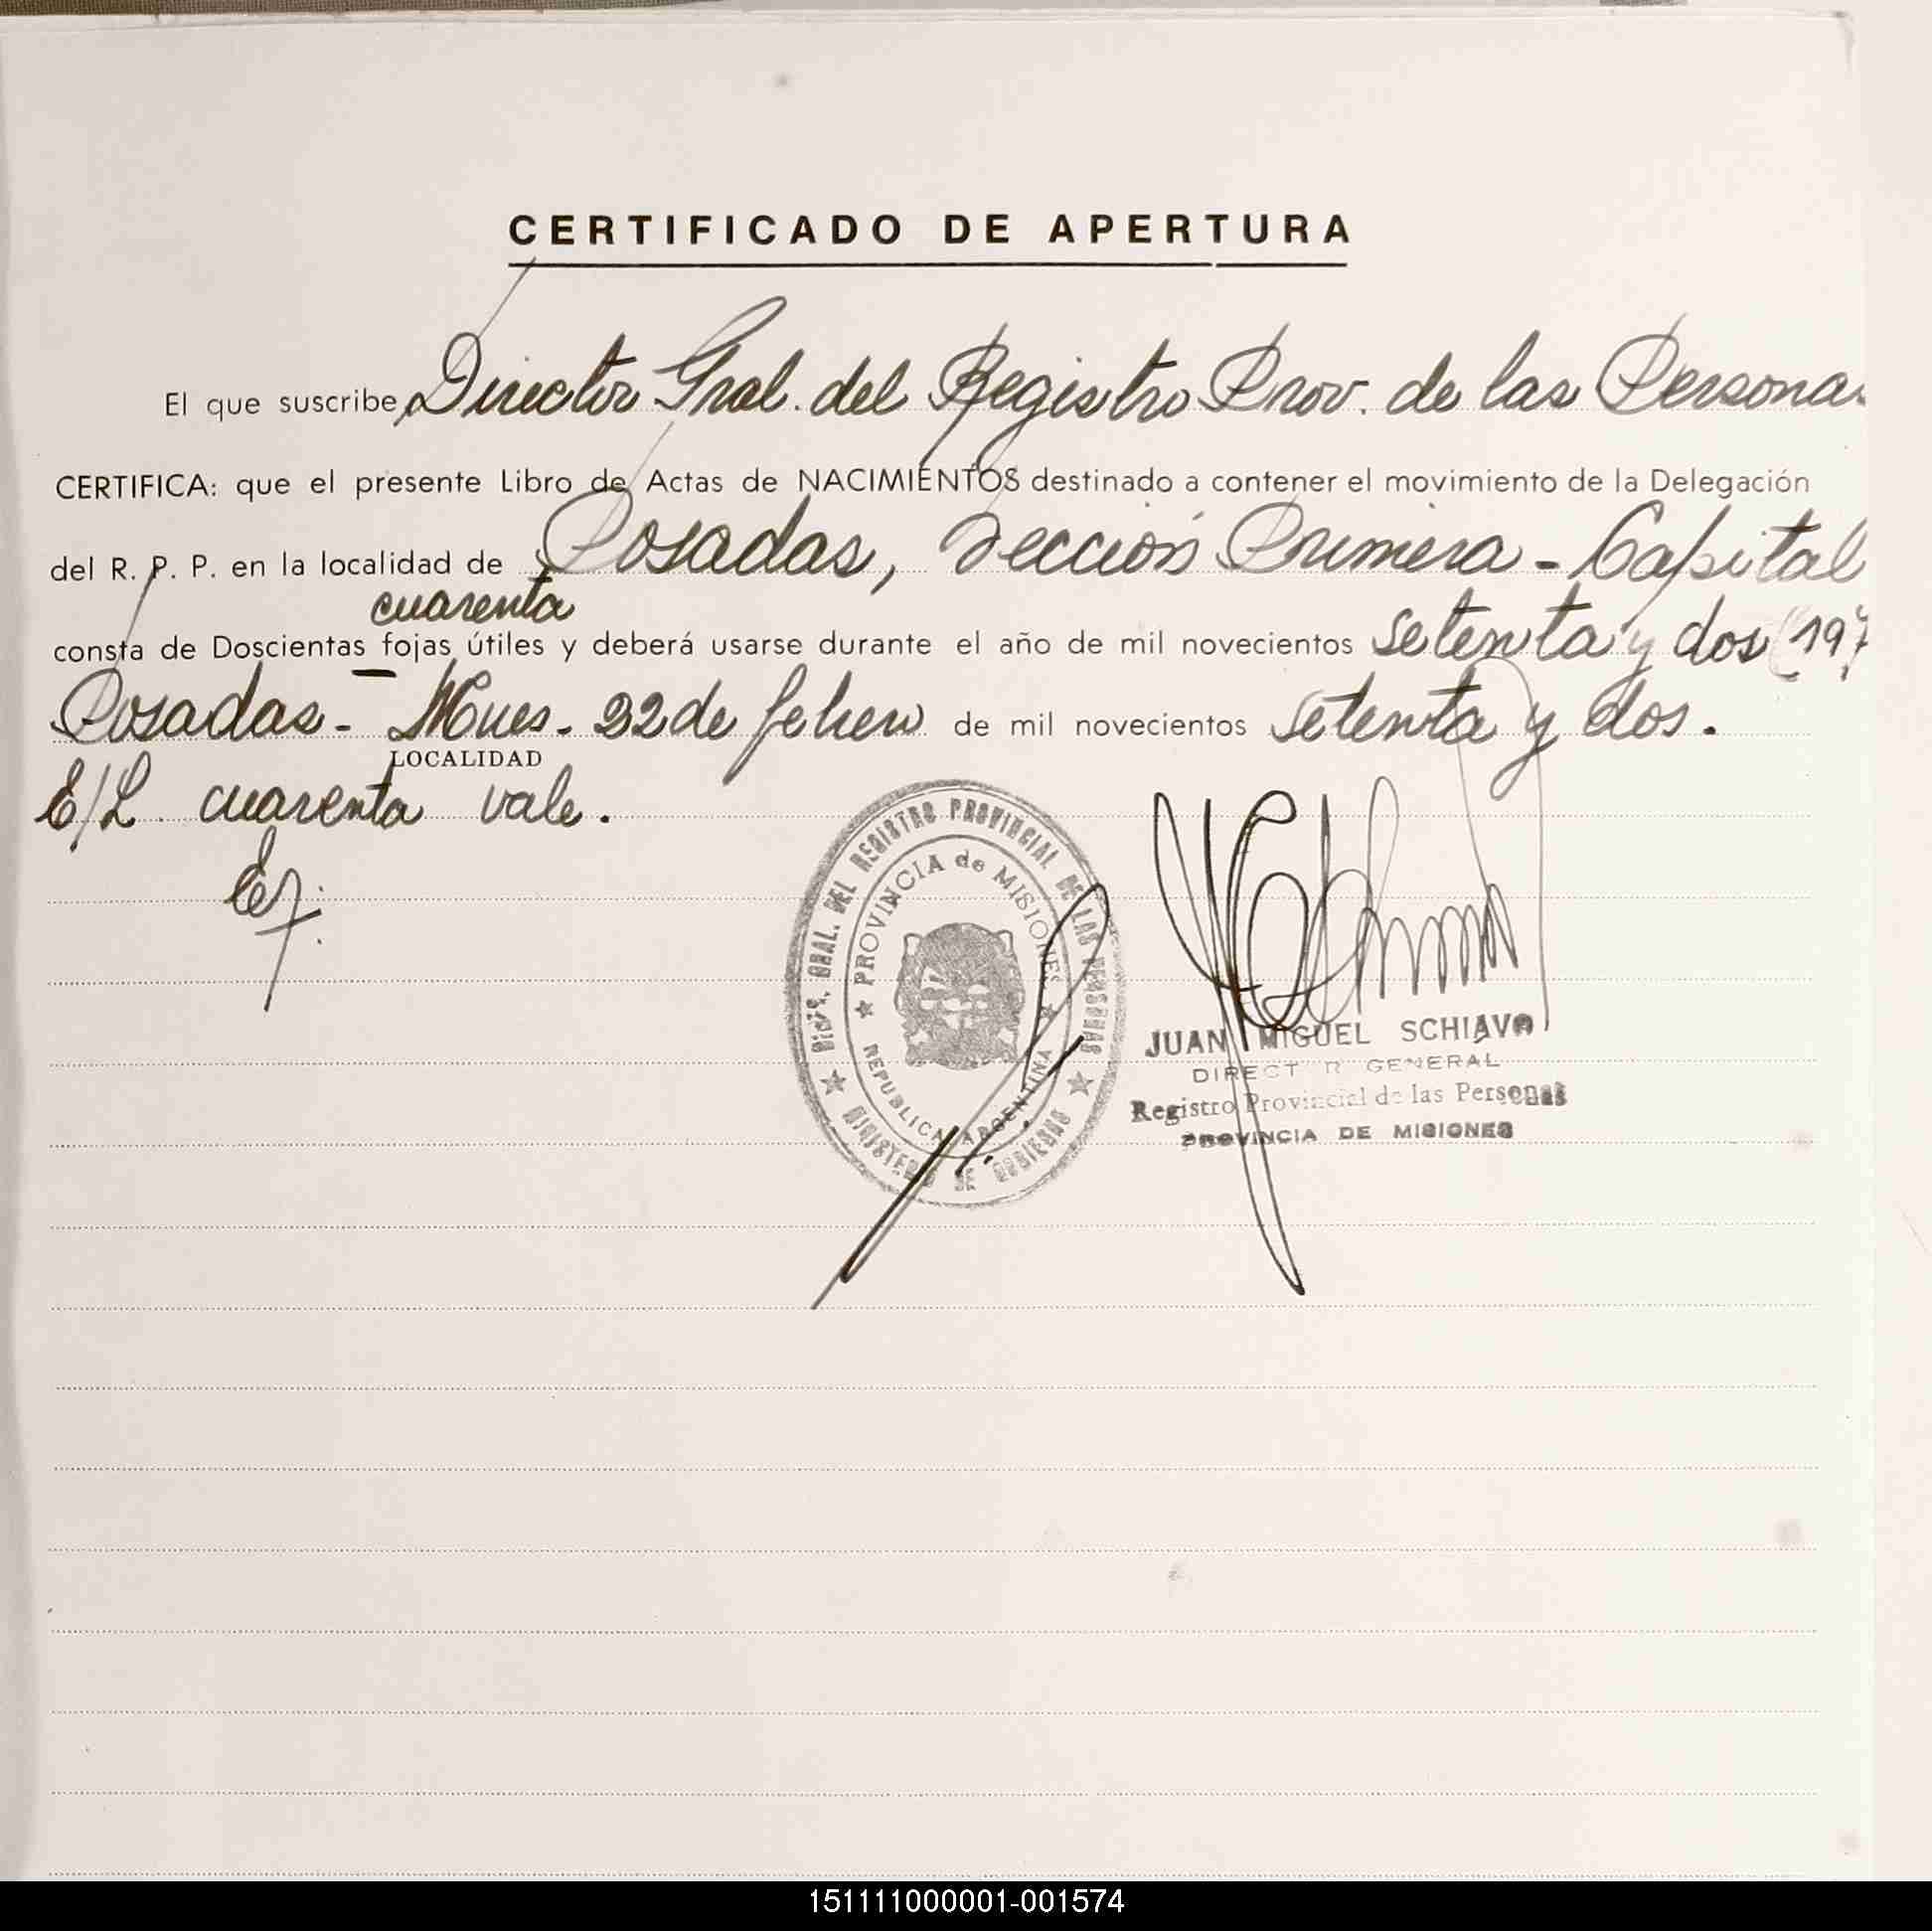 CERTIFICADO DE APERTURA
El que suscribe, Director Gral. del Registro Prov. de las Personas
CERTIFICA: que el presente Libro de Actas de NACIMIENTOS destinado a contener el movimiento de la Delegación
del R. P. P. en la localidad de Posadas, Sección Primera - Capital
cuarenta
consta de Doscientas fojas útiles y deberá usarse durante el año de mil novecientos setenta y dos (197
Posadas - Mnes - 22 de febrero de mil novecientos setenta y dos.
LOCALIDAD
E/L cuarenta vale.
DIREC. GRAL. DEL REGISTRO PROVINCIAL DE LAS PERSONAS
PROVINCIA de MISIONES
REPUBLICA ARGENTINA
MINISTERIO DE GOBIERNO
JUAN MIGUEL SCHIAVO
DIRECTOR GENERAL
Registro Provincial de las Personas
PROVINCIA DE MISIONES
151111000001-001574